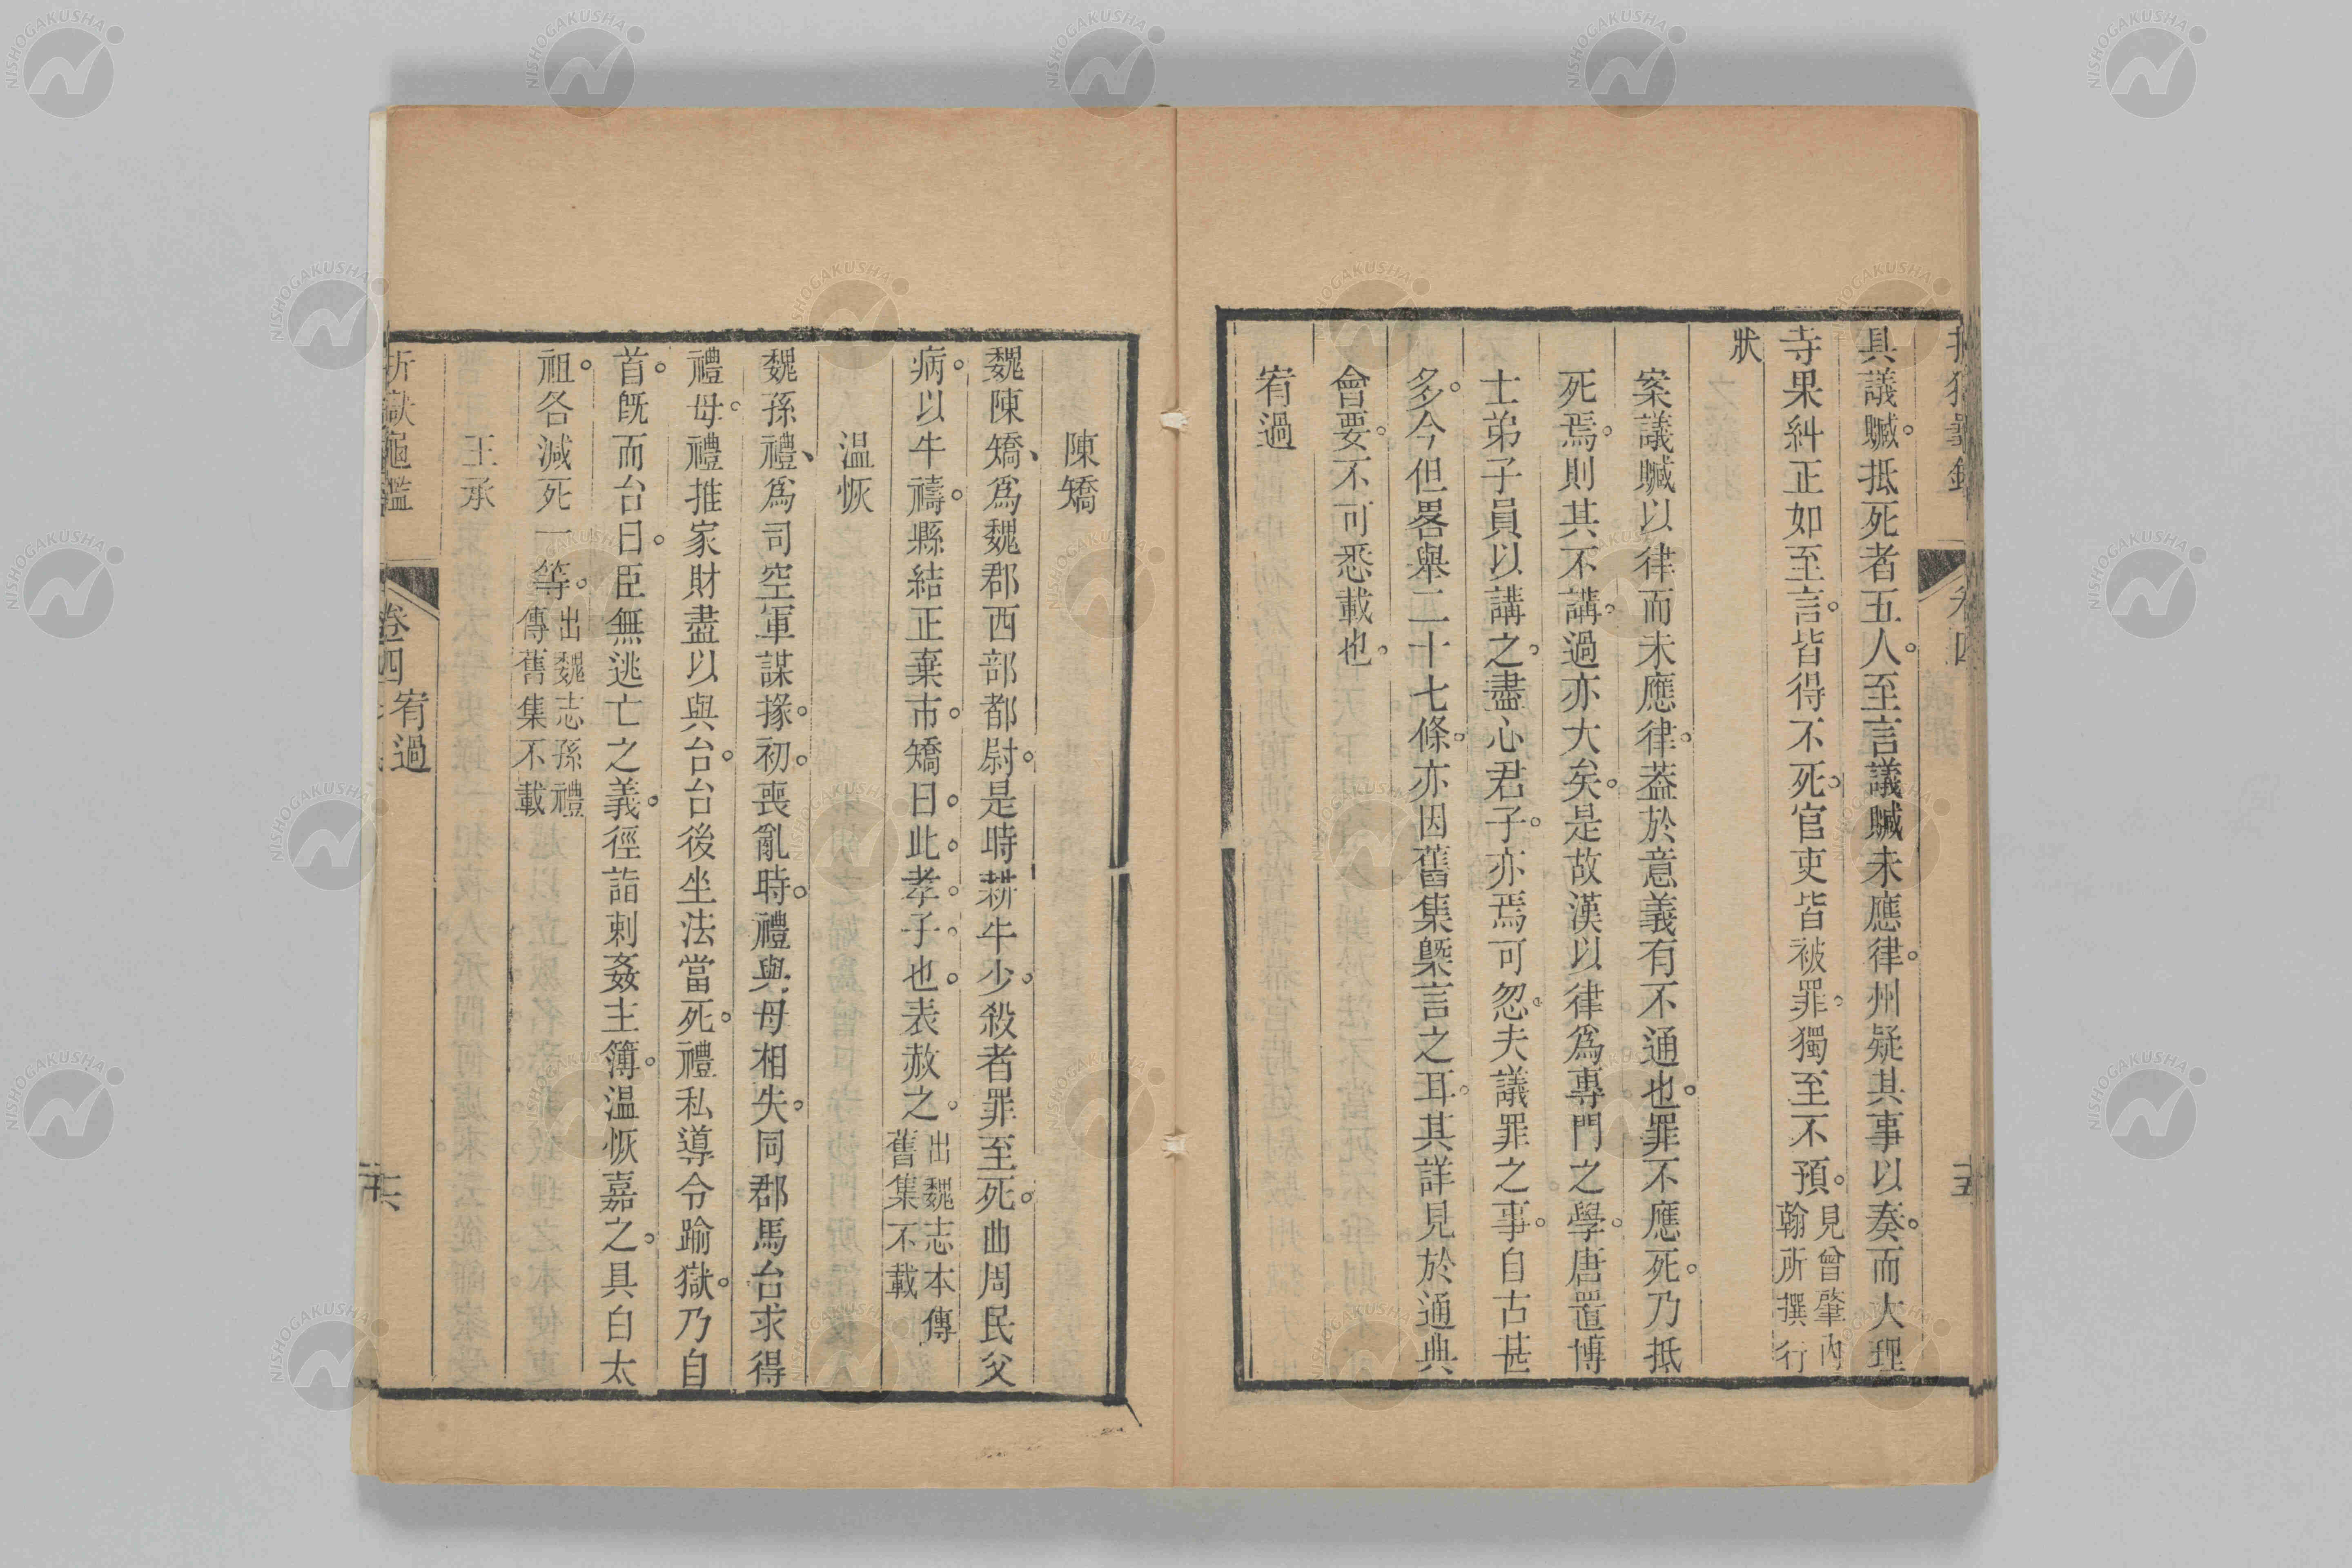 具議贓。抵死者五人。至言議贓未應律。州疑其事以奏。而大理
寺果糾正如至言。皆得不死。官吏皆被罪。獨至不預。見曾肇內翰所撰行
狀
案議贓以律而未應律。葢於意義有不通也。罪不應死。乃抵
死焉。則其不講。過亦大矣。是故漢以律爲專門之學。唐置博
士弟子員以講之。盡心君子。亦焉可忽。夫議罪之事。自古甚
多。今但畧舉二十七條。亦因舊集槩言之耳。其詳見於通典
會要。不可悉載也。
宥過
陳矯
魏陳矯、爲魏郡西部都尉。是時耕牛少。殺者罪至死。曲周民父
病。以牛禱。縣結正棄市。矯曰。此。孝。子。也。表赦之。出魏志本傳舊集不載
温恢
魏孫禮、爲司空軍謀掾。初。喪亂時。禮與母相失。同郡馬台求得
禮母。禮推家財盡以與台。台後坐法當死。禮私導令踰獄。乃自
首。旣而台曰。臣無逃亡之義。徑詣刺姦主簿。温恢嘉之。具白太
祖。各減死一等。出魏志孫禮傳舊集不載
王承
折獄龜鑑 卷四 宥過